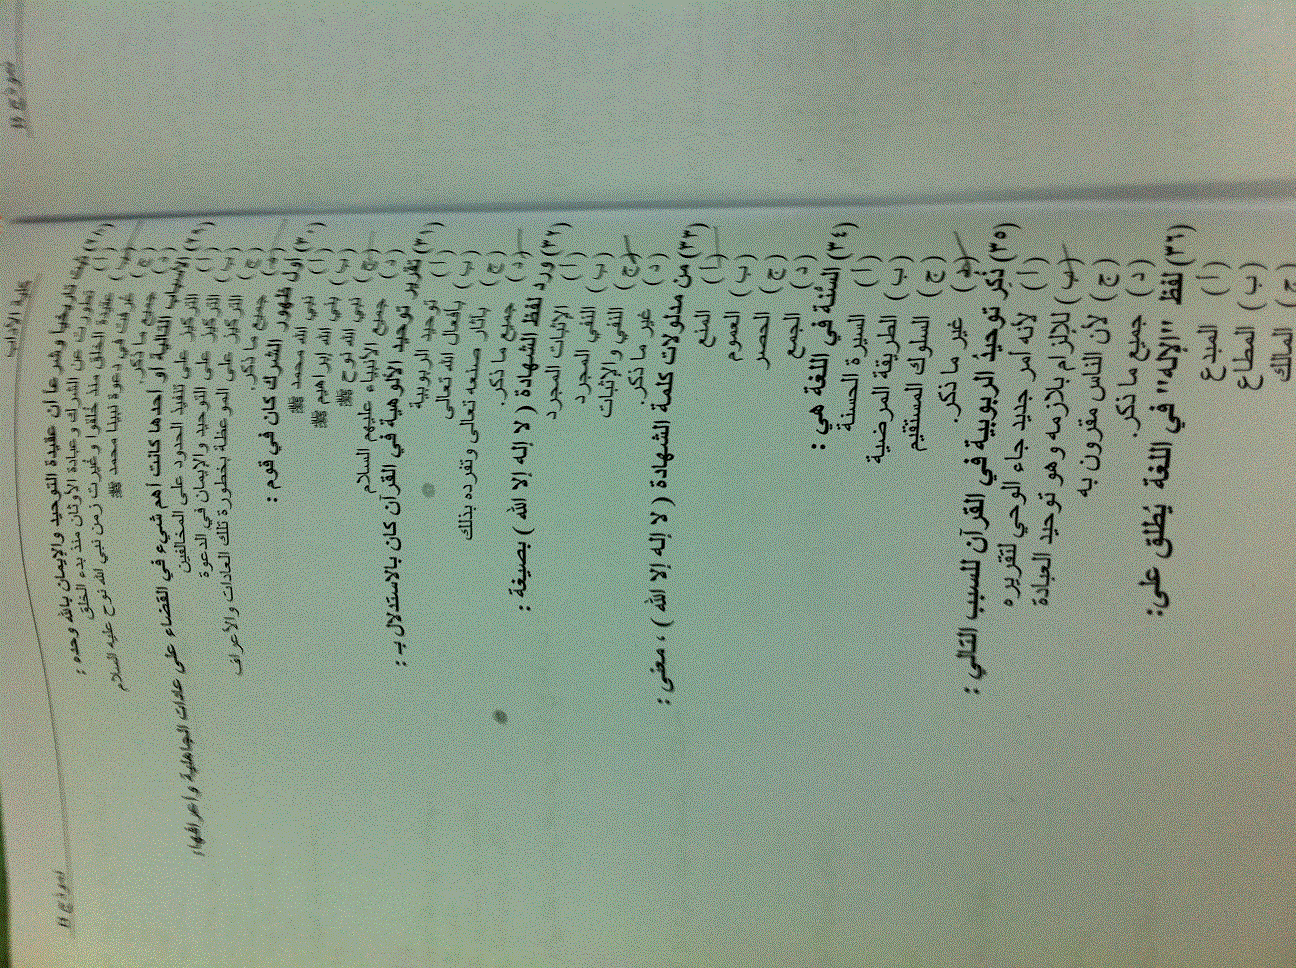 نموذج B
كلية الآداب
نموذج B
(٢٨) ثبت تاريخيا وشرعا أن عقيدة التوحيد والإيمان بالله وحده :
(أ) تطورت عن الشرك وعبادة الأوثان منذ بدء الخلق
(ب) عقيدة الخلق منذ خلقوا وغيرت زمن نبي الله نوح عليه السلام
(ج) عرفت في دعوة نبينا محمد ﷺ
(د) جميع ما ذكر.
(٢٩) الأسباب التالية أو أحدها كانت أهم شيء في القضاء على عادات الجاهلية وأعرافها:
(أ) التركيز على تنفيذ الحدود على المخالفين
(ب) التركيز على التوحيد والإيمان في الدعوة
(ج) التركيز على الموعظة بخطورة تلك العادات والأعراف
(د) جميع ما ذكر.
(٣٠) أول ظهور الشرك كان في قوم :
(أ) نبي الله محمد ﷺ
(ب) نبي الله إبراهيم ﷺ
(ج) نبي الله نوح ﷺ
(د) جميع الأنبياء عليهم السلام
(٣١) تقرير توحيد الألوهية في القرآن كان بالاستدلال بـ :
(أ) توحيد الربوبية
(ب) بأفعال الله تعالى
(ج) بآثار صنعه تعالى وتفرده بذلك
(د) جميع ما ذكر.
(٣٢) ورد لفظ الشهادة ( لا إله إلا الله ) بصيغة :
(أ) الإثبات المجرد
(ب) النفي المجرد
(ج) النفي والإثبات
(د) غير ما ذكر.
(٣٣) من مدلولات كلمة الشهادة ( لا إله إلا الله ) ، معنى :
(أ) المنع
(ب) العموم
(ج) الحصر
(د) الجمع
(٣٤) السُنّة في اللغة هي :
(أ) السيرة الحسنة
(ب) الطريقة المرضية
(ج) السلوك المستقيم
(د) غير ما ذكر.
(٣٥) ذُكر توحيدُ الربوبية في القرآن للسبب التالي :
(أ) لأنه أمر جديد جاء الوحي لتقريره
(ب) للإلزام بلازمه وهو توحيد العبادة
(ج) لأن الناس مقرون به
(د) جميع ما ذكر.
(٣٦) لفظ "الإله" في اللغة يُطلق على:
(أ) المبدع
(ب) المطاع
(ج) المالك